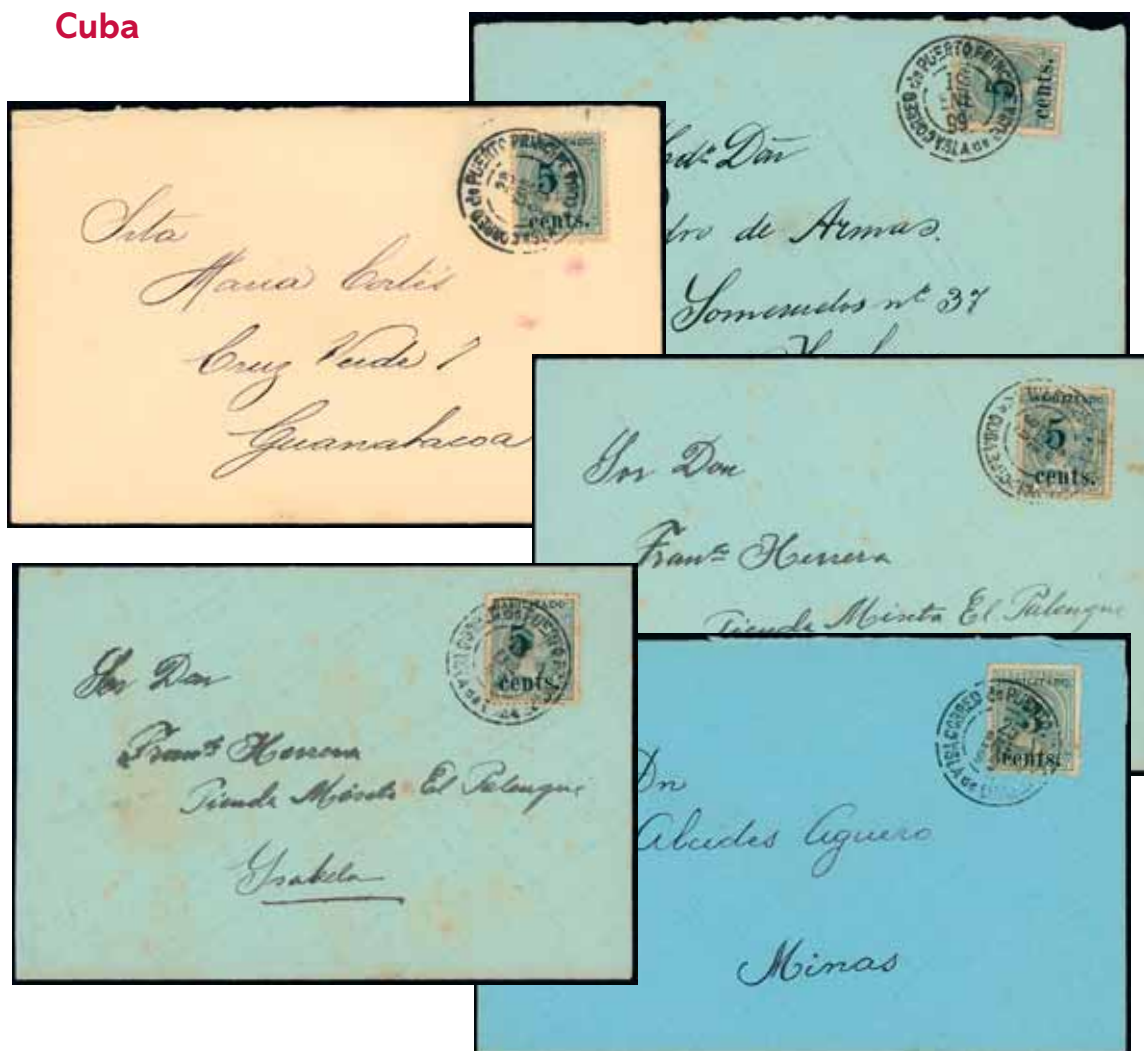 Cuba
CORREO de PUERTO PRINCIPE
5
cents.
Srta
Maria Cortés
Cruz Verde 7
Guanabacoa
CORREO de PUERTO PRINCIPE
ISLA de
99
5
cents.
Don
de Armas.
Someruelos nº 37
5
cents.
Sor Don
Franco Herrera
Tienda Mixta El Palenque
HABILITADO
5
cents.
Sor Don
Franco Herrera
Tienda Mixta El Palenque
Ysabela
CORREO de PUERTO
5
cents.
Dn
Alcides Aguero
Minas